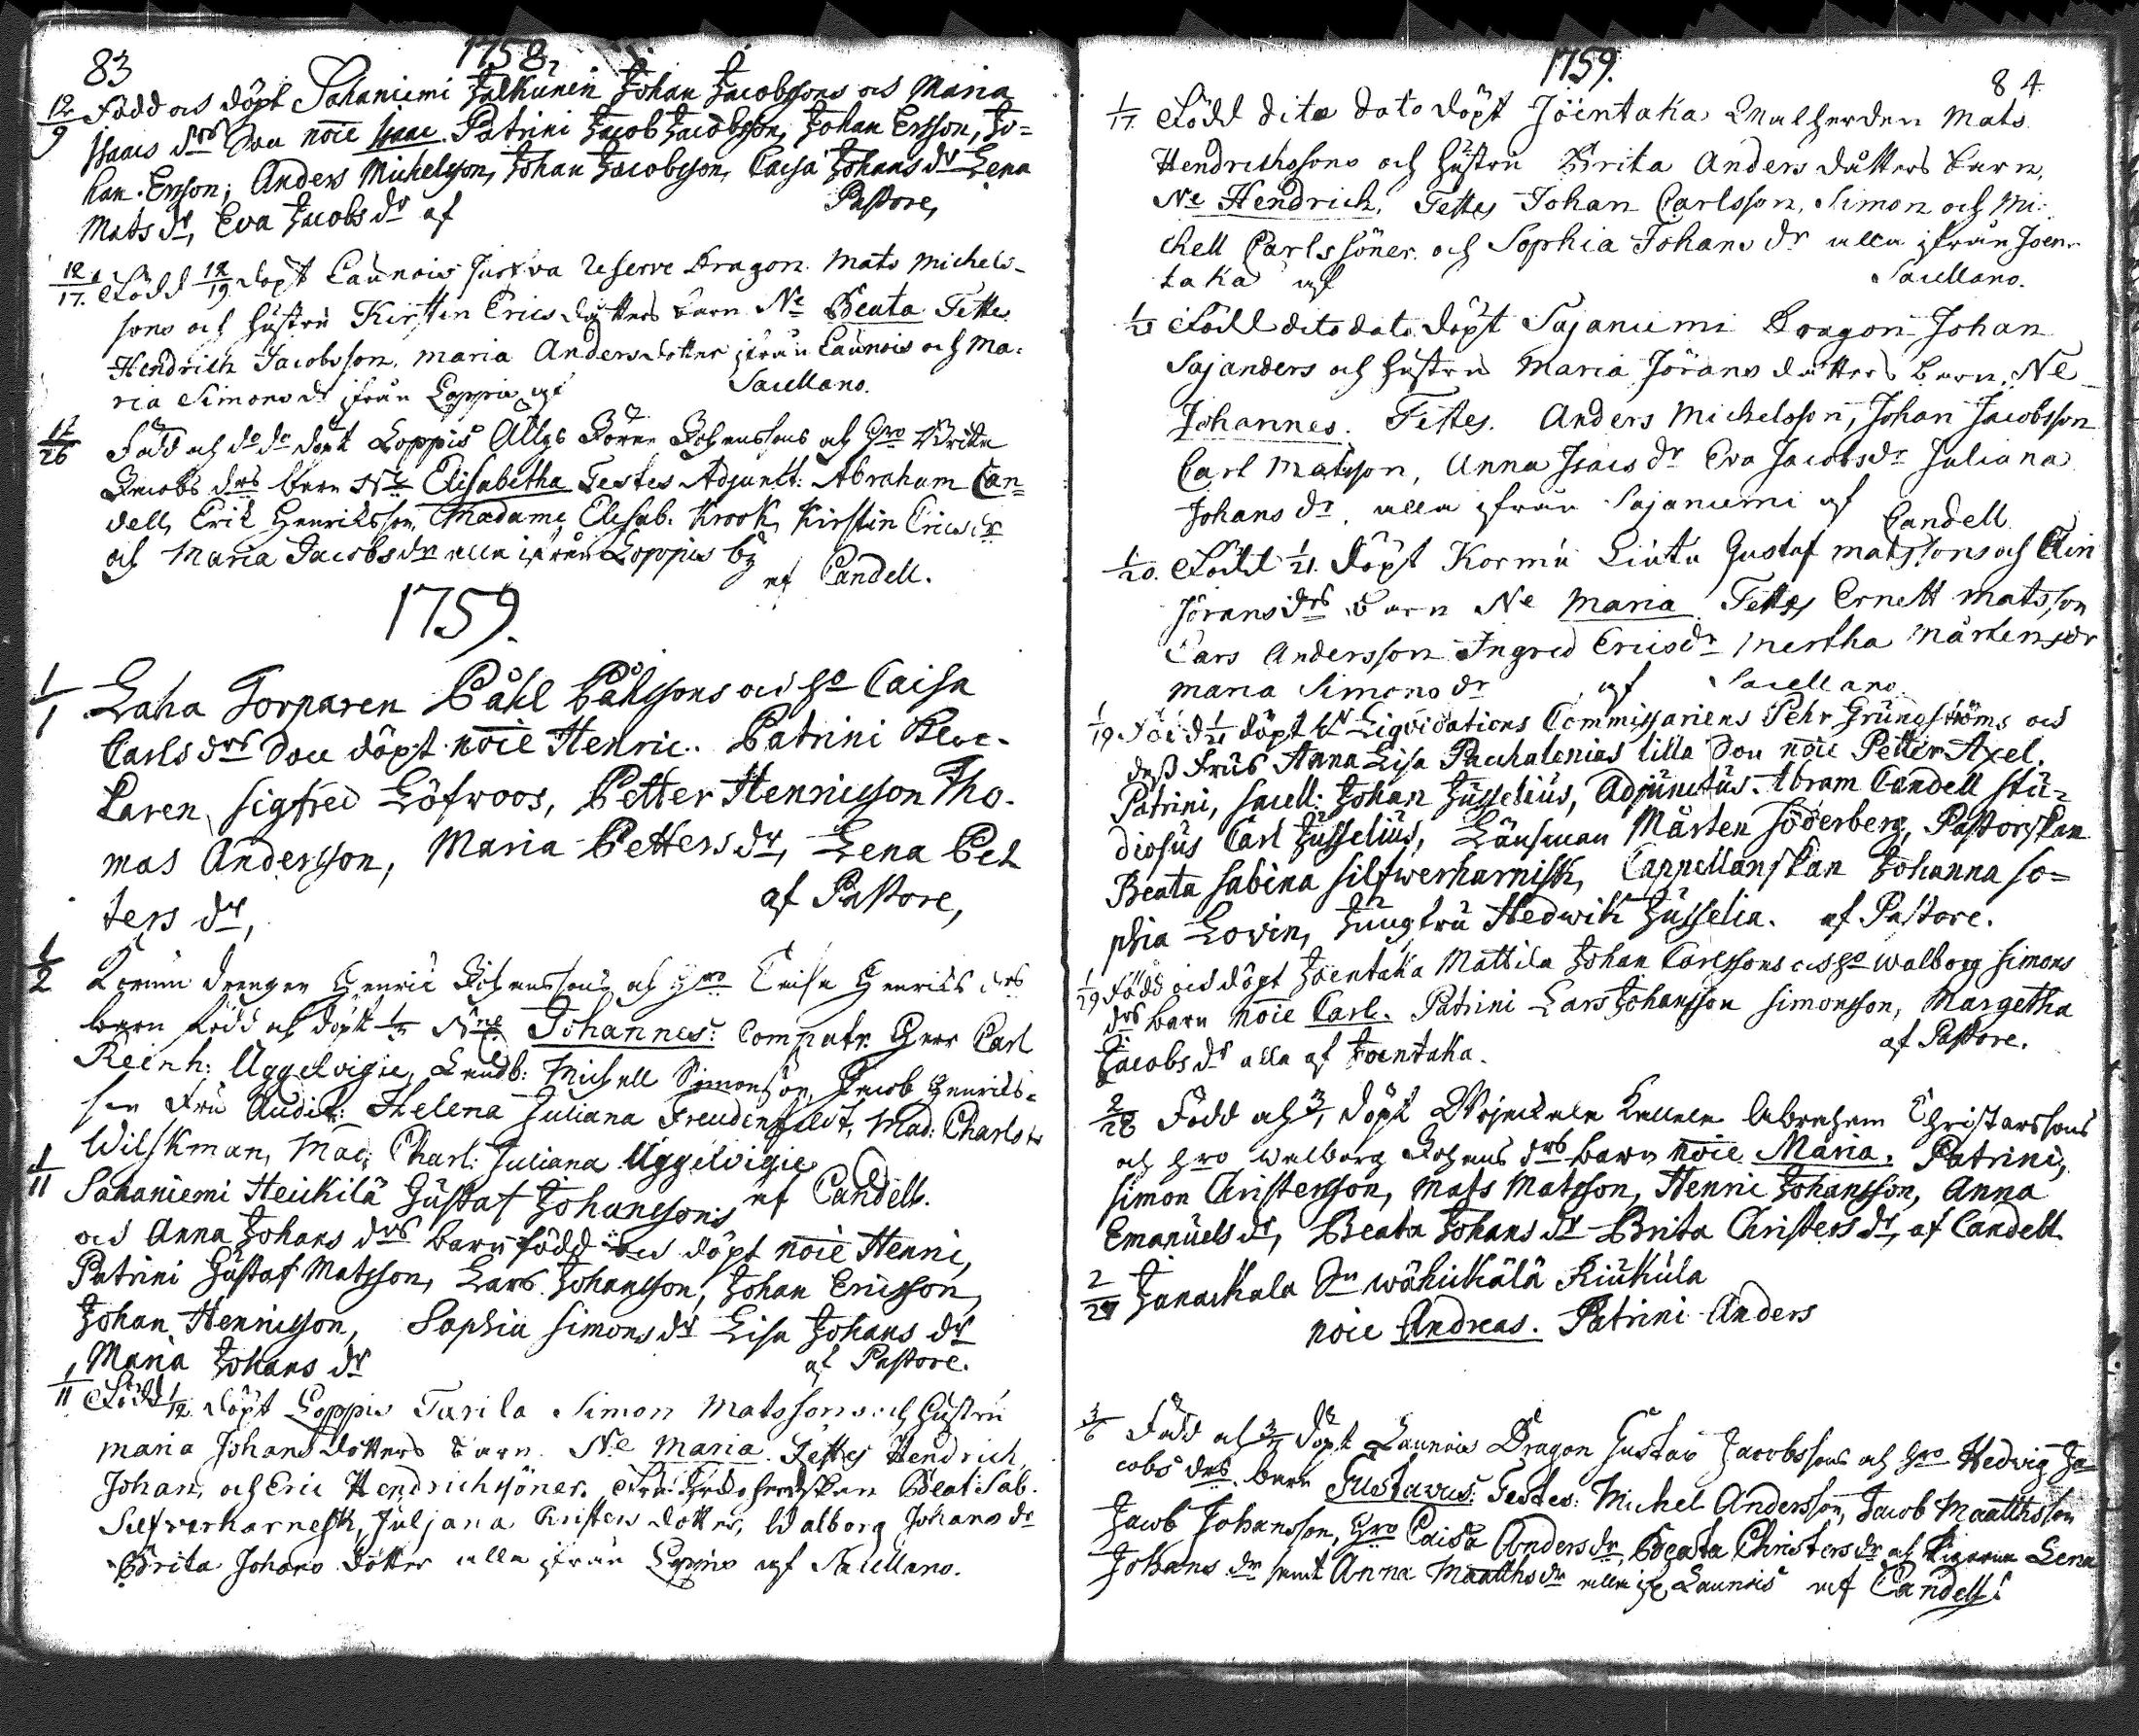 83
1758,
12/9 Född och döpt Sahaniemi Jalkunen Johan Jacobssons och Maria
Isaacs drs Son noie Isaac. Patrini Jacob Jacobsson, Johan Ersson, Jo=
han Ersson, Anders Michelsson, Johan Jacobsson, Caisa Johans dr Lena
Mats dr, Eva Jacobs dr af Pastore,
12/17. Född 12/19 döpt Launois reserve Dragon Mats Michels-
sons och hustru Kirstin Erics dotters barn Ne Beata Testes
Hendrich Jacobsson, maria Anders dotter ifrån Launois och Ma:
ria Simons dr ifrån Loppis af Sacellano.
12/26 Född och do do döpt Loppis Göran Johanssons och Hro Britta
Jacobs drs barn Ne Elisabetha Testes Adjunct: Abraham Can=
dell, Erik Henriksson, Madame Elisab. Krook, Kirstin Erics dr
och Maria Jacobs dr alla ifrån Loppis by af Candell.
1759.
1/1 Laha Torparen Påhl Påhlssons och ho Caisa
Carls drs Son döpt noie Henric. Patrini Kloc-
karen Sigfred Löfwoos, Petter Henricsson Tho-
mas Andersson, Maria Petters dr, Lena Pet
ters dr, af Pastore,
1/2 Kormu drengen Henric Johanssons och Hro Caisa Henrics drs
barn född och döpt Nne Johannes: Compatr: Herr Carl
Reinh: Uggelvigie, Michell Simonson, Jacob Henrics=
son Fru Audit: Helena Juliana Freudenfeldt, Mad: Charl:
Wilskman, Mad: Charl: Juliana Uggelvigie af Candell.
1/11 Sahaniemi Heickilä Gustaf Johanssons
och Anna Johans drs barn född och döpt noie Henric,
Patrini Gustaf Matsson, Lars Johansson, Johan Ericsson,
Johan Henricsson, Sophia Simons dr Lisa Johans dr
Maria Johans dr af Pastore.
1/11 Född 1/12 döpt Loppis Tarila Simon Matssons och hustru
maria Johans dotters barn. Ne Maria. Testes Hendrich,
Johan, och Eric Hendrichsöner, Fru Beat: Sab.
Silfverharnesk, Juljana Kristers dotter, Walborg Johans dr
Brita Johans dotter alla ifrån Loppis af Sacellano.
1759.
84
1/17 Född dito dato döpt Jöentaka Mats
Hendrichssons och hustru Brita Anders dåtters barn,
Ne Hendrich. Testes Johan Carlsson, Simon och Mi:
chell Carlssöner och Sophia Johans dr alla ifrån Joen-
taka af Sacellano.
Född dito dato döpt Sajaniemi Dragon Johan
Sajanders och hustru Maria Jörans dåtters barn, Ne
Johannes. Testes. Anders Michelsson, Johan Jacobsson
Carl Matsson, Anna Isacs dr Eva Jacobs dr Juliana
Johans dr. alla ifrån Sajaniemi af Candell
1/20. Född 1/21. döpt Kormu Liutu Gustaf matssons och Elin
Jörans drs barn Ne Maria Testes Ernett matsson
Lars Andersson Ingred Erics dr Mertha Mårtens dr
maria Simons dr af Sacellano
1/19. Född 1/21 döpt hr Liqvidations Commissariens Pehr Grüngströms och
dess Frus Anna Lisa Pacchalenias lilla Son noie Petter Axel.
Patrini, Sacell: Johan Jusselius, Adjunctus. Abram Candell Stu=
diosus Carl Jusselius, Länsman Mårten Söderberg, Pastorskan
Beata Sabina Silfwerharnisk, Cappellanskan Johanna So=
phia Lovin, Jungfru Hedwik Jusselia. af Pastore.
1/29 Född och döpt Joentaka Mattila Johan Carlssons och ho Walborg Simons
drs barn noie Carl. Patrini Lars Johansson Simonsson, Margetha
Jacobs dr alla af Joentaka. af Pastore.
2/28 Född och döpt Abraham Christerssons
och Hro Walborg Johans drs barn noie Maria. Patrini,
Simon Christersson, Mats Matsson, Henric Johansson, Anna
Emanuels dr, Beata Johans dr Brita Christers dr, af Candell
2/27 Janackala Sn Wähikälä Kiukula
noie Andreas. Patrini Anders
3/6 Född och döpt Launois Dragon Gustav Jacobssons och Hro Hedvig Ja=
cobs drs. barn Gustavus: Testes: Michel Andersson, Jacob Maatthsson
Jacob Johansson, Hro Caisa Anders dr, Beata Christers dr och Pigorna Lena
Johans dr samt Anna Maatths dr alla ifr. Launois af Candell.